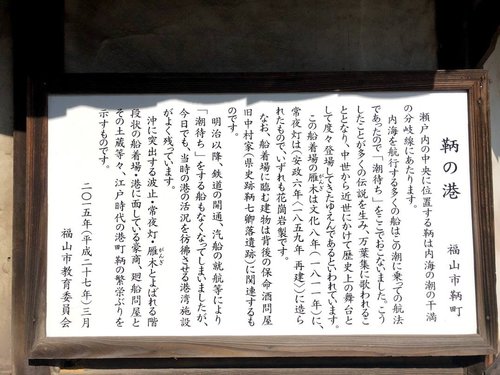 鞆の港　福山市鞆町
瀬戸内の中央に位置する鞆は内海の潮の干満
の分岐線にあたります。
内海を航行する多くの船はこの潮に乗っての航法
であったので「潮待ち」をここでおこないました。こう
したことが多くの伝説を生み、万葉集に歌われるこ
ととなり、中世から近世にかけて歴史上の舞台と
して度々登場してきたゆえんであるといわれています。
この船着場の雁木は文化八年（一八一一年）に、
常夜灯は〈安政六年（一八五九年 再建）〉に造ら
れたもので、いずれも花崗岩製です。
なお、船着場に臨む建物は背後の保命酒問屋
旧中村家（県史跡鞆七卿落遺跡）に関連するも
のです。
明治以降、鉄道の開通、汽船の就航等により
「潮待ち」をする船もなくなってしまいましたが、
今日でも、当時の港の活況を彷彿させる港湾施設
がよく残っています。
沖に突出する波止・常夜灯・雁木とよばれる階
段状の船着場・港に面している豪商、廻船問屋と
その土蔵等々、江戸時代の港町鞆の繁栄ぶりを
示すものです。
二〇一五年（平成二十七年）三月
福山市教育委員会